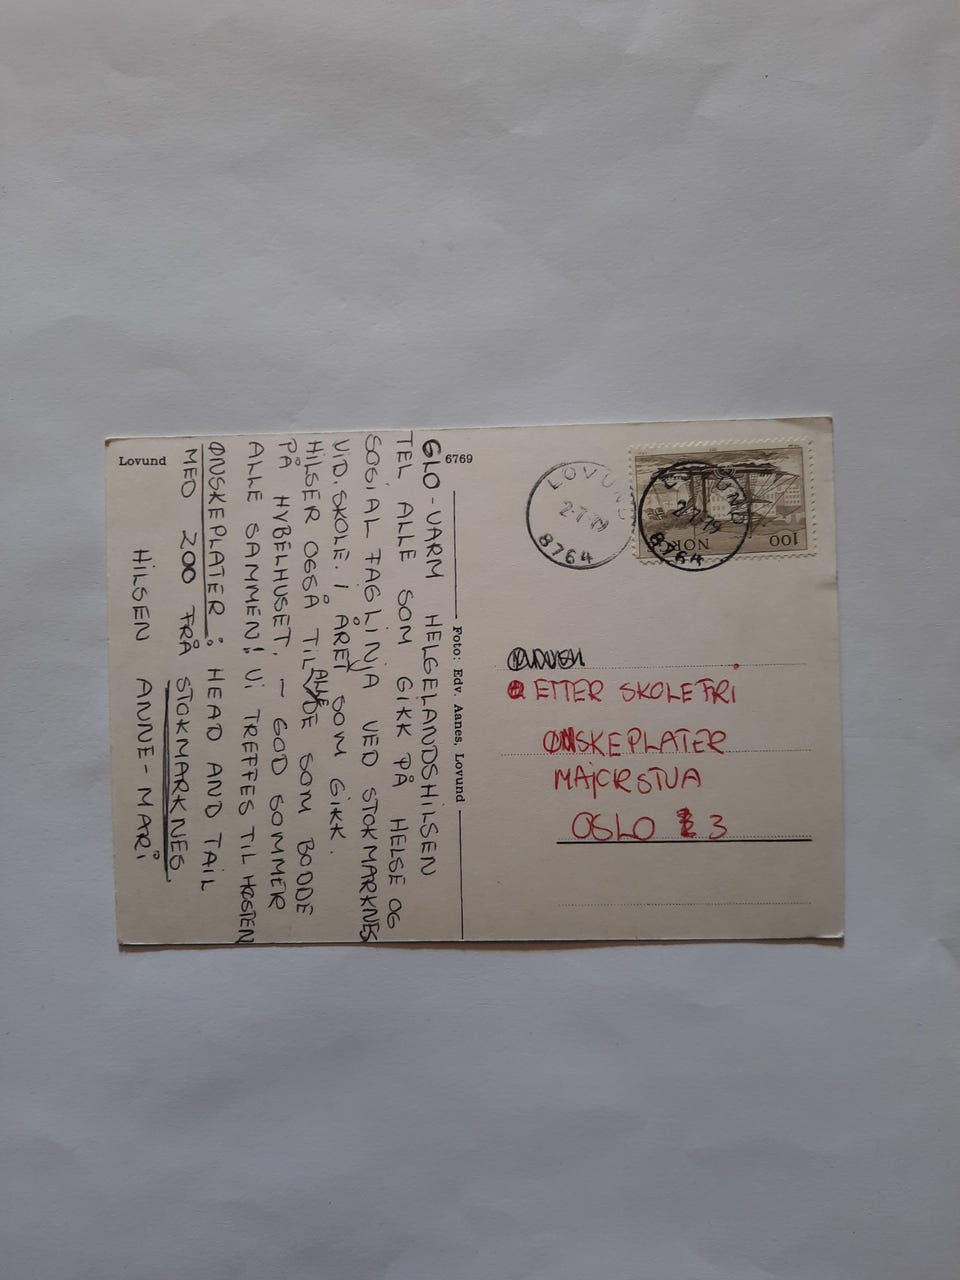 Lovund
6769
GLO-VARM HELGELANDSHILSEN
TEL ALLE SOM GIKK PÅ HELSE OG
SOSIAL FAGLINJA VED STOKMARKNES
VID. SKOLE. I ÅRET SOM GIKK.
HILSER OGSÅ TIL ALLE DE SOM BODDE
PÅ HYBELHUSET. – GOD SOMMER
ALLE SAMMEN! VI TREFFES TIL HØSTEN
ØNSKEPLATER: HEAD AND TAIL
MED 200 FRÅ STOKMARKNES.
HILSEN ANNE-MARI
Foto: Edv. Aanes, Lovund
LOVUND
2-7-79
8764
LOVUND
2-7-79
8764
NORGE
100
ETTER SKOLEFRI
ØNSKEPLATER
MAJORSTUA
OSLO 3